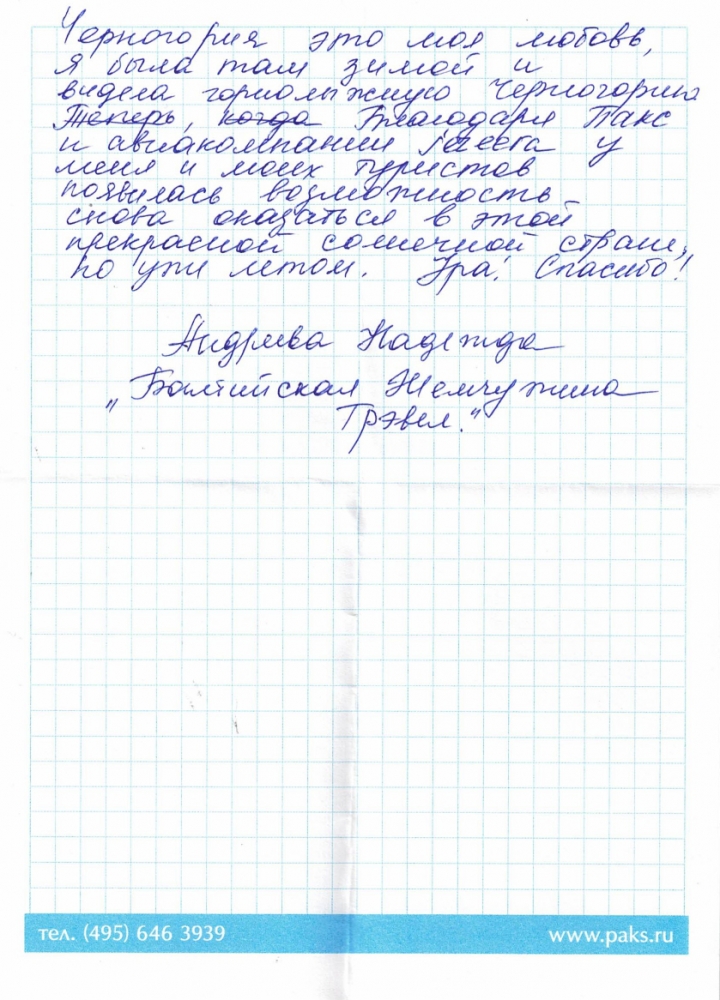 Черногория это моя любовь,
я была там зимой и
видела горнолыжную Черногорию
Теперь, когда Благодаря Пакс
и авиакомпании у
меня и моих туристов
появилась возможность
снова оказаться в этой
прекрасной солнечной стране,
но уже летом. Ура! Спасибо!
Андреева Надежда
„Балтийская Жемчужина
Трэвел."
тел. (495) 646 3939
www.paks.ru